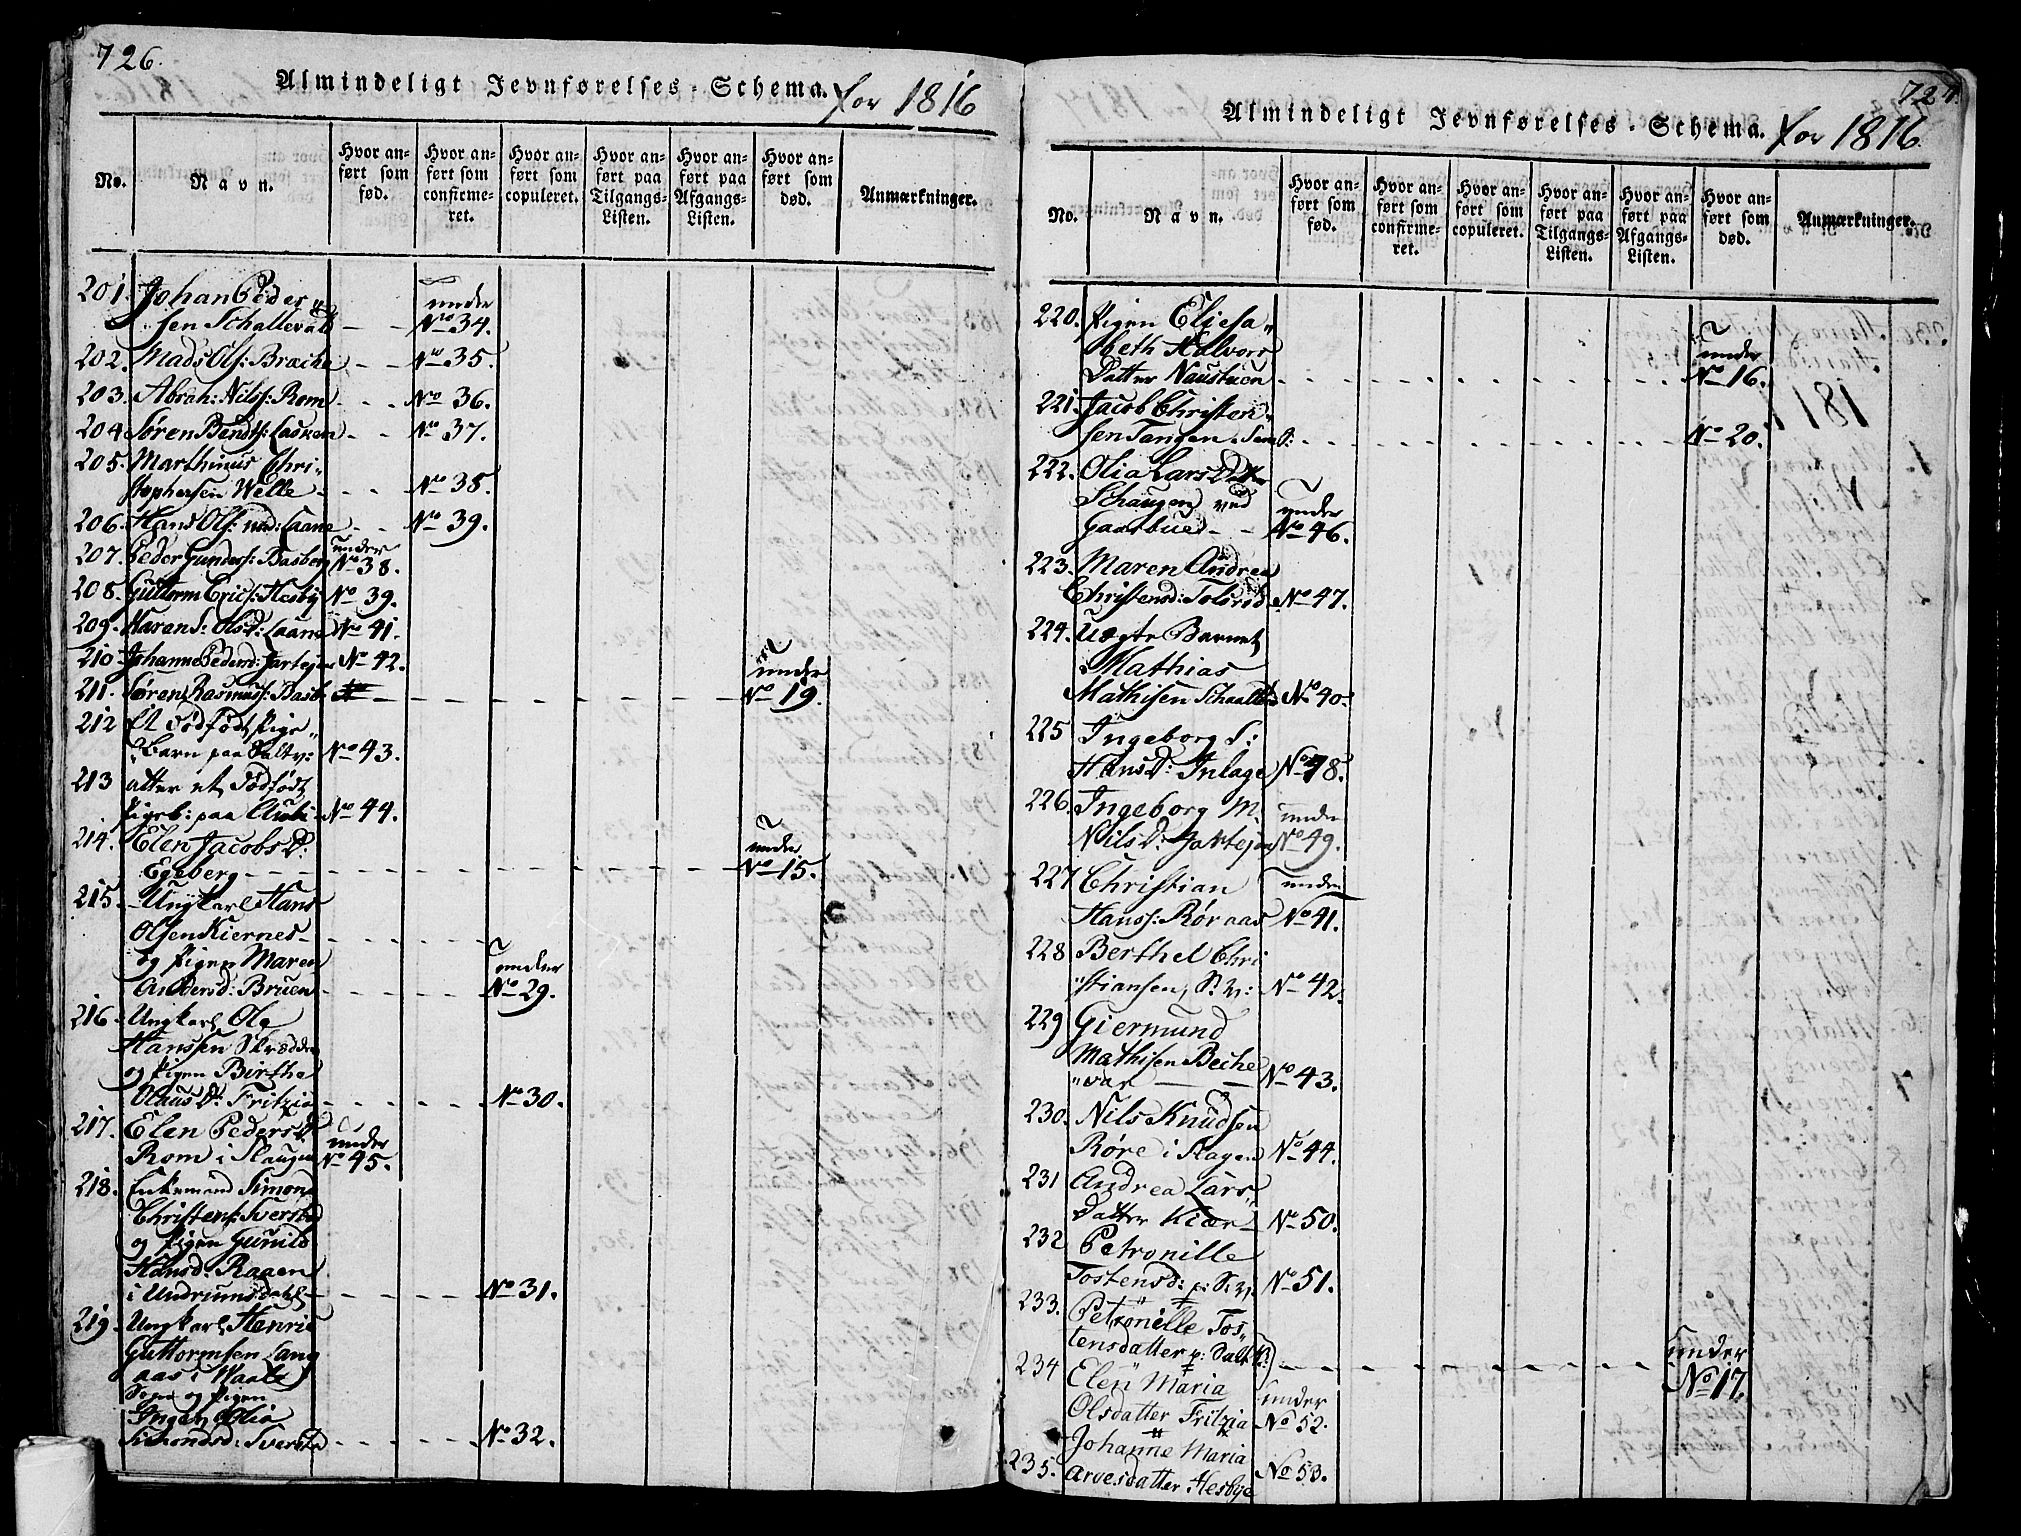 726.
Almindeligt Jevnførelses-Schema. for 1816
No.
Navn.
Hvor anført som fød.
Hvor anført som confirmeret.
Hvor anført som copuleret.
Hvor anført paa Tilgangs-Listen.
Hvor anført paa Afgangs-Listen.
Hvor anført som død.
Anmærkninger.
201. Johan Peder
sen Schallevald - - under No 34.
202. Mads Ols: Brache - - No 35.
203. Abrah: Nilss: Rom - - No 36.
204 Søren Bendts: Lasken - - No 37.
205. Marthinus Chri-
stophersen Welle - - No 38.
206. Hans Ols: ned: Laane - - No 39.
207. Peder Gunders: Basberg under No 38.
208. Guttorm Erics: Hesby No 39.
209. Karen S: OlsD: Laane No 41.
210. Johanne Pedersd: Jartejen No 42.
211. Søren Rasmuss: Basb. - - - - - under No 19.
212 Et dødfødt Pige"
"Barn paa Saltv: No 43.
213 atter et dødfødt
Pigeb: paa No 44.
214. Elen Jacobs D:
Egeberg - - - - - - under No 15.
215. Ungkarl Hans
Olsen Kiernes - - -
og Pigen Maren
Andersd: Bruen - - under No 29.
216 Ungkarl Ole
Hanssen Skrædder
og Pigen Birtha
Olaus D: Fritzia - - - No 30.
217. Elen Peders D
Rom i Slaugen under No 45.
218. Enkemand Simon
Christens: Sverstad
og Pigen Gunild
Hansd: Raaen
i Undrumsdahl - - - No 31.
219. Ungkarl Henric
Guttormsen Lang
aas i Waale
Sogn og Pigen
Inger Olia
Simonsd: Sversta - - - No 32.
727
Almindeligt Jevnførelses-Schema. for 1816.
No.
Navn.
Hvor anført som fød.
Hvor anført som confirmeret.
Hvor anført som copuleret.
Hvor anført paa Tilgangs-Listen.
Hvor anført paa Afgangs-Listen.
Hvor anført som død.
Anmærkninger.
220. Pigen Eliesa"
beth Halvors
Datter Naustuen - - - - - under No 16.
221. Jacob Christen"
sen Tangen - - - - - No 20.
222. Olia Lars Datter
Schaugen ved
Gaasbue - - under No 46.
223. Maren Andrea
Christensd: Tolsrød No 47.
224. Uægte Barnet
Mathias
Mathisen Schaallev No 40.
225 Ingeborg S:
Hans D: Inlage No 48.
226. Ingeborg M.
Nils D: Jartejen under No 49.
227 Christian
Hanss: Røraas under No 41.
228 Berthel Chri
"stiansen, S: v: No 42.
229 Giermund
Mathisen Beche
"var - - No 43.
230. Nils Knudsen
Røre i Slagen No 44.
231 Andrea Lars"
datter Kiær - No 50.
232 Petronille
Tostensd: p: S: v. No 51.
233. Petronille Tos"
tensdatter p: Salt v: - - - - - under No 17.
234 Elen Maria
Olsdatter Fritzia under No 52.
235. Johanne Maria
Arvesdatter Hesbye No 53.